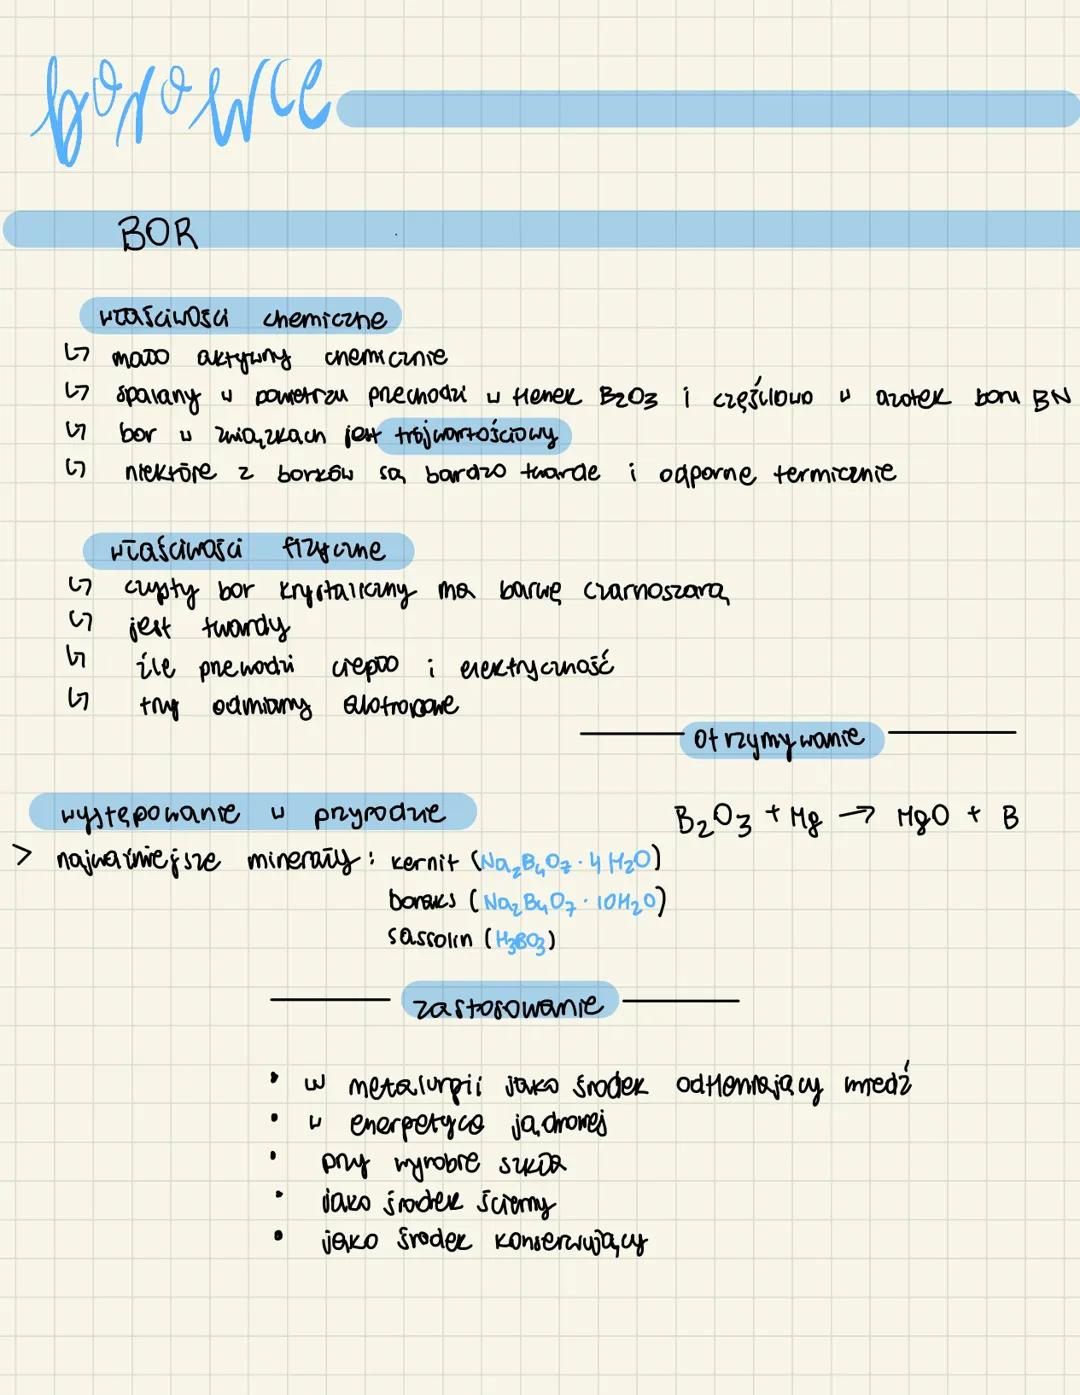 borowce
BOR
właściwości chemiczne
↳ mało aktywny chemicznie
↳ spalany w powietrzu przechodzi w tlenek B₂O₃ i częściowo w azotek boru BN
↳ bor w związkach jest trójwartościowy
↳ niektóre z borków są bardzo twarde i odporne termicznie
właściwości fizyczne
↳ czysty bor krystaliczny ma barwę czarnoszarą
↳ jest twardy
↳ źle przewodzi ciepło i elektryczność
↳ trzy odmiany alotropowe
otrzymywanie
B₂O₃ + Mg → MgO + B
występowanie w przyrodzie
> najważniejsze minerały: kernit (Na₂B₄O₇ · 4H₂O)
boraks (Na₂B₄O₇ · 10H₂O)
sassolin (H₃BO₃)
zastosowanie
• w metalurgii jako środek odtleniający miedź
• w energetyce jądrowej
• przy wyrobie szkła
• jako środek ścierny
• jako środek konserwujący